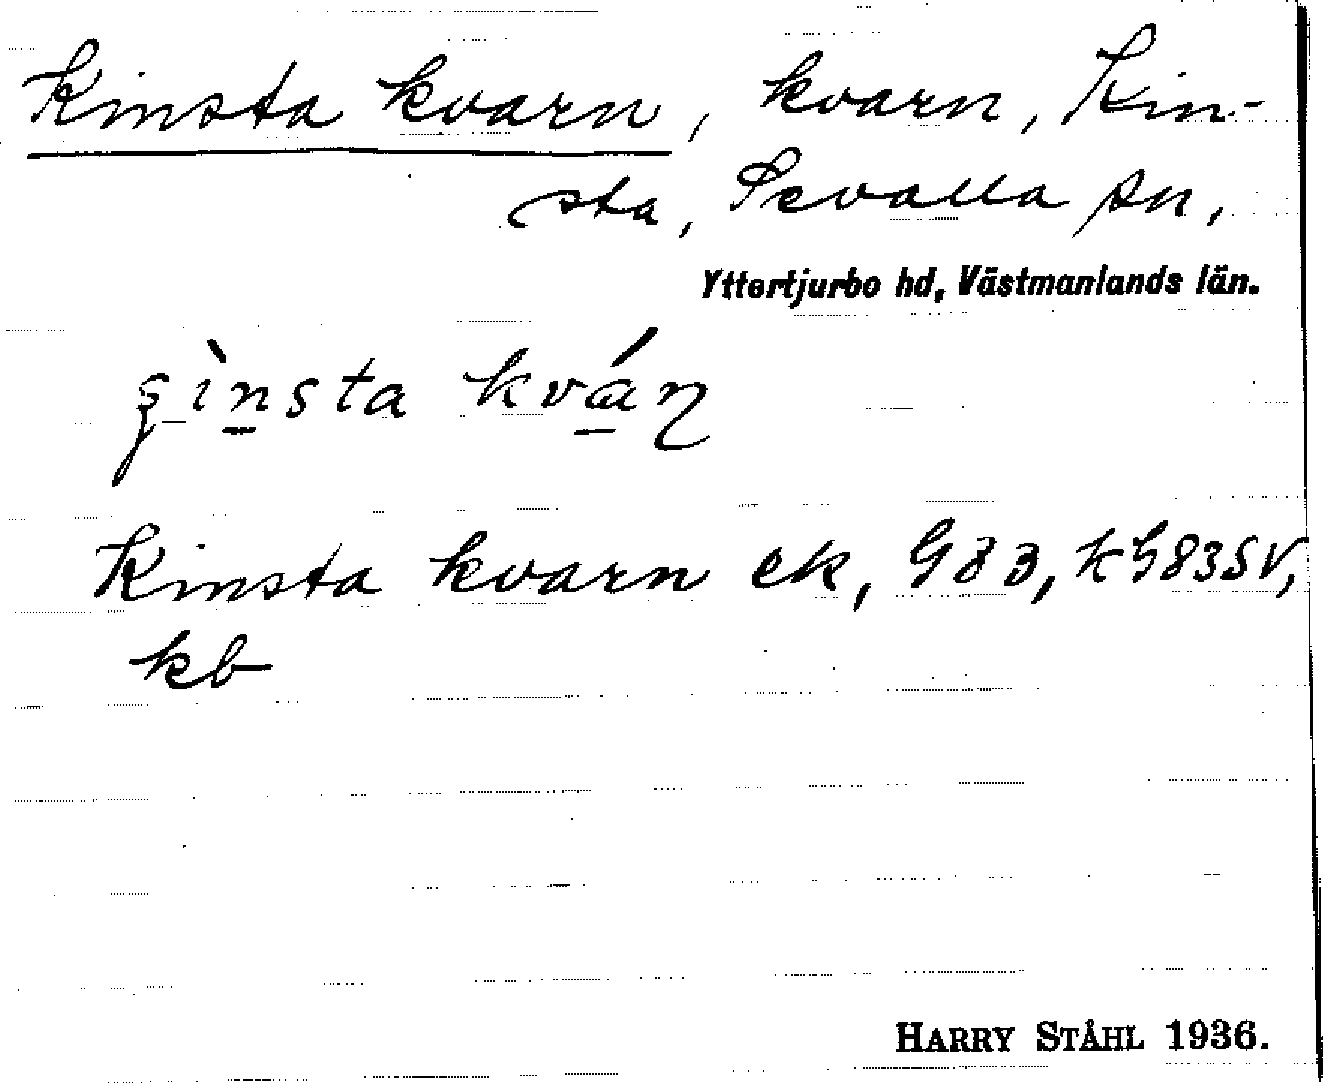 Kinsta kvarn, kvarn, Kin-
sta, Sevalla sn,
Yttertjurbo hd, Västmanlands län.
kván
Kinsta kvarn ek, G83, kG83SV,
kb
HARRY STÅHL 1936.